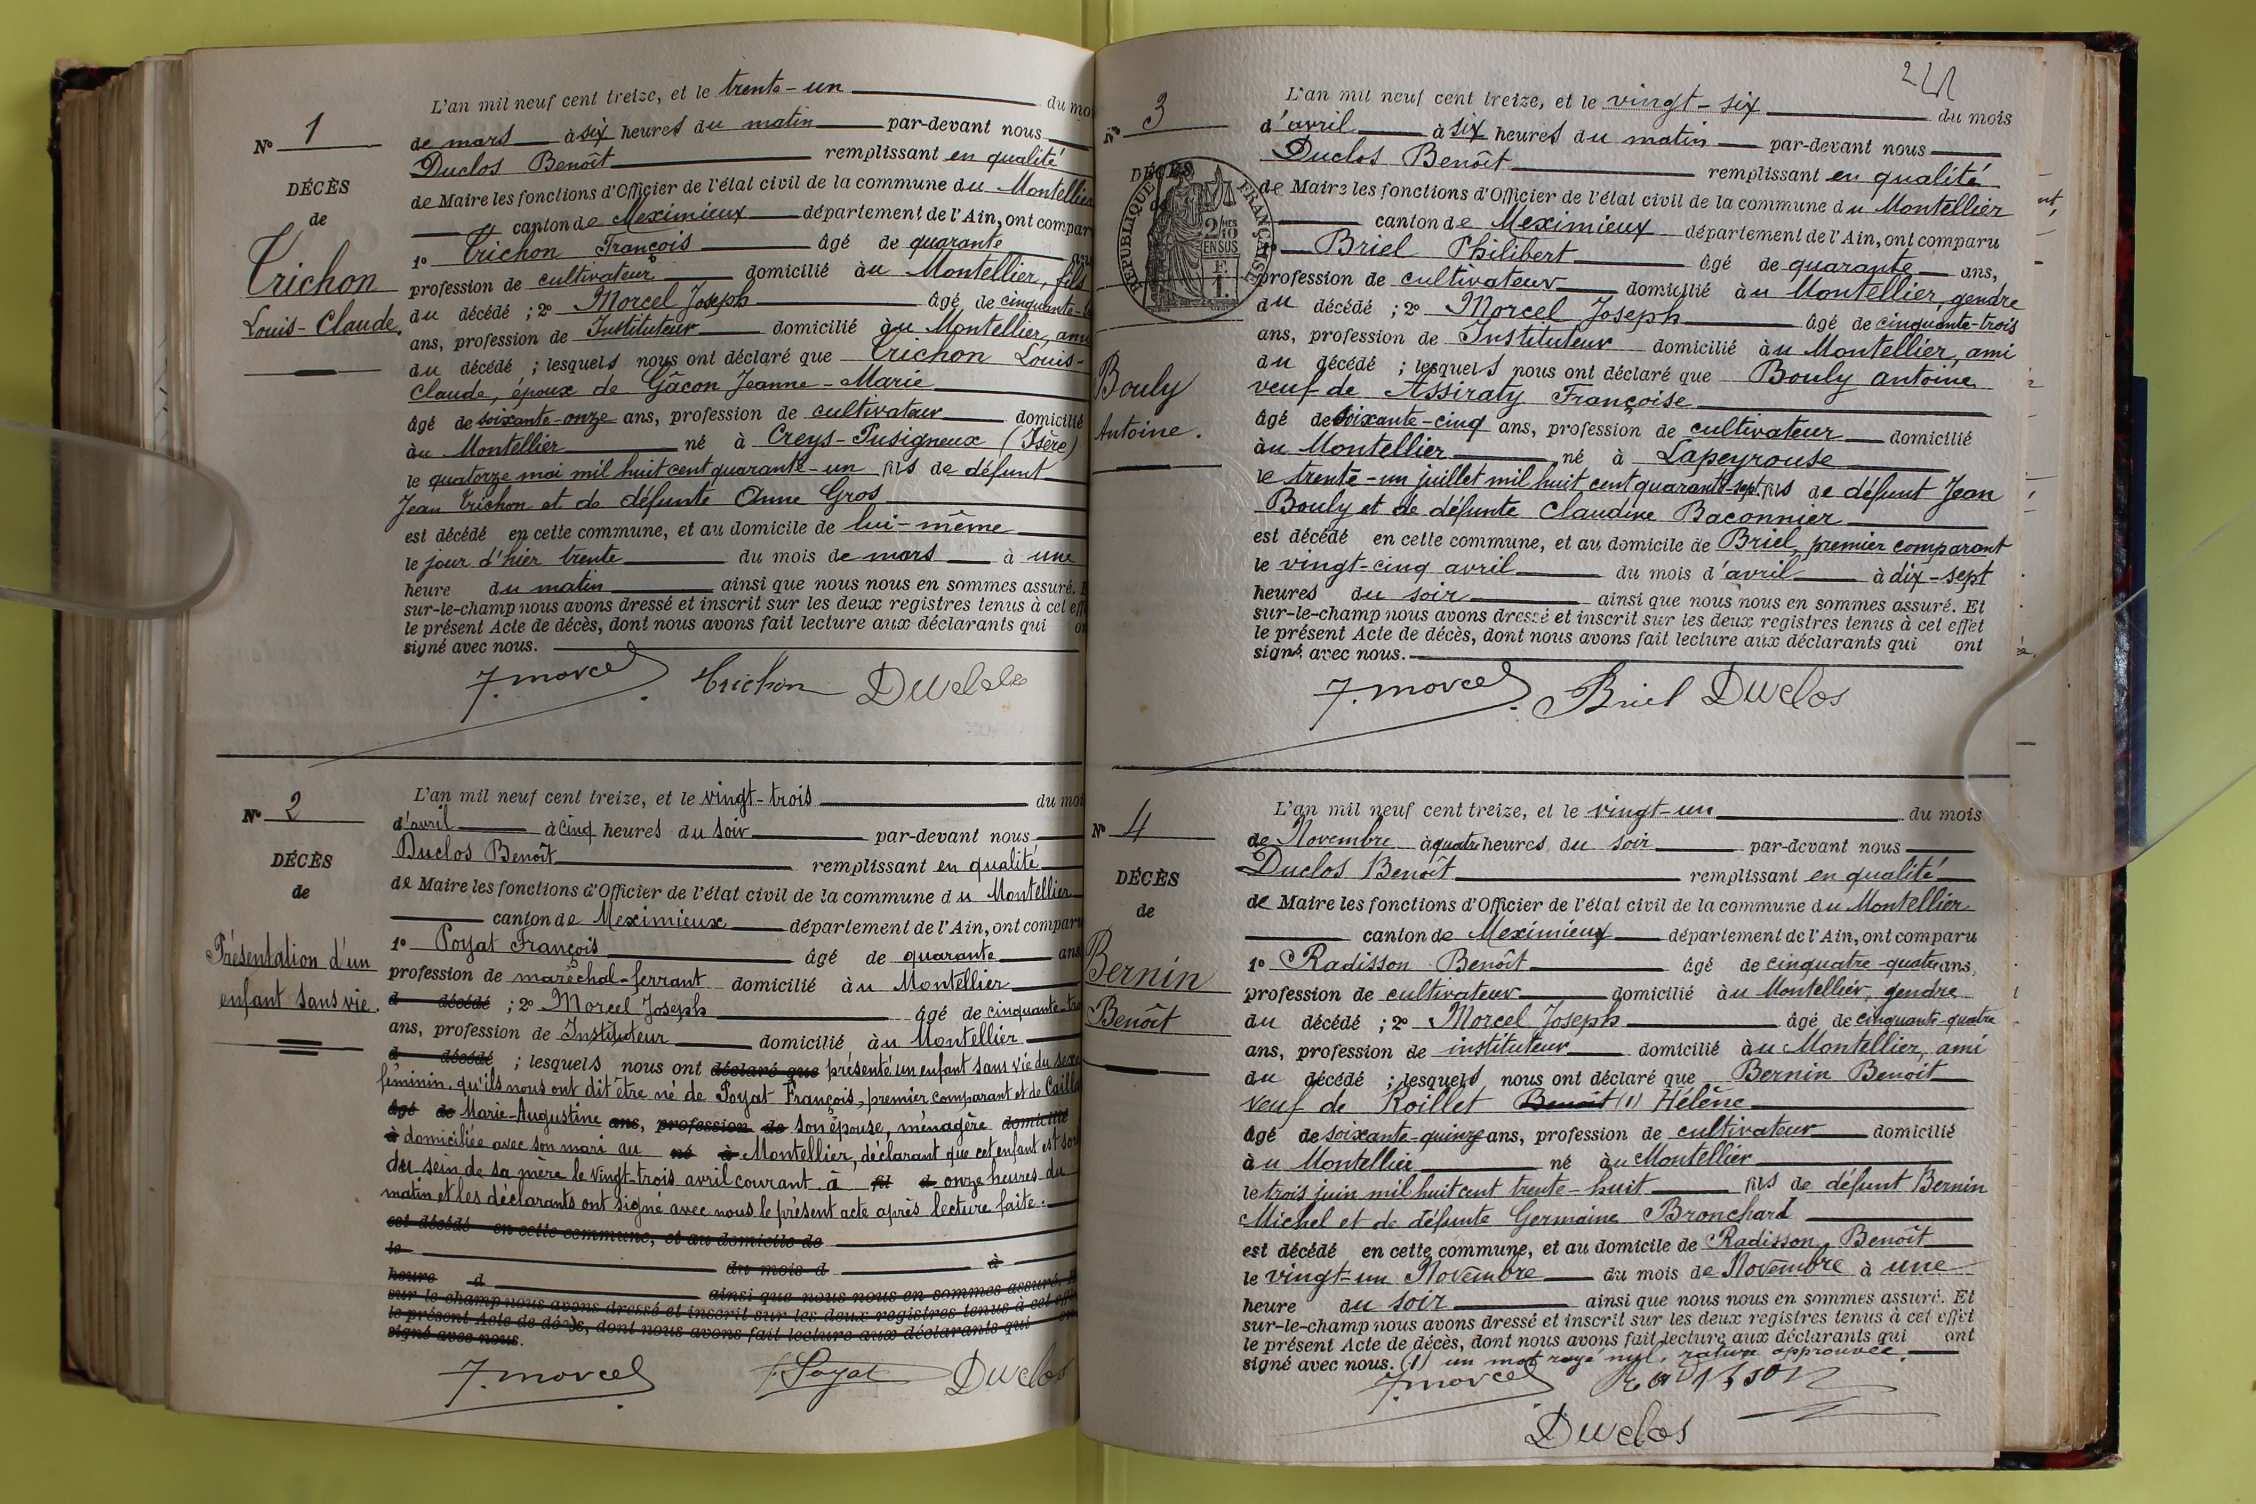 N° 1
DÉCÈS
de
Trichon
Louis-Claude.
L'an mil neuf cent treize, et le trente-un du moi
de mars à six heures du matin par-devant nous
Duclos Benoît remplissant en qualité
de Maire les fonctions d'Officier de l'état civil de la commune du Montellier
canton de Meximieux département de l'Ain, ont compar
1° Trichon François âgé de quarante ans
profession de cultivateur domicilié àu Montellier, fils
du décédé ; 2° Morcel Joseph âgé de cinquante-t
ans, profession de Instituteur domicilié àu Montellier, ami
du décédé ; lesquels nous ont déclaré que Trichon Louis-
Claude, époux de Gâcon Jeanne-Marie
âgé de soixante-onze ans, profession de cultivateur domicilié
àu Montellier né à Creys-Pusigneux (Isère)
le quatorze mai mil huit cent quarante-un fils de défunt
Jean Trichon et de défunte Anne Gros
est décédé en cette commune, et au domicile de lui-même
le jour d'hier trente du mois de mars à une
heure du matin ainsi que nous nous en sommes assuré. E
sur-le-champ nous avons dressé et inscrit sur les deux registres tenus à cet eff
le présent Acte de décès, dont nous avons fait lecture aux déclarants qui on
signé avec nous.
J. Morcel Trichon Duclos
N° 2
DÉCÈS
de
Présentation d'un
enfant sans vie.
L'an mil neuf cent treize, et le vingt-trois du moi
d'avril à cinq heures du soir par-devant nous
Duclos Benoît remplissant en qualité
de Maire les fonctions d'Officier de l'état civil de la commune du Montellier
canton de Meximieux département de l'Ain, ont comparu
1° Poyat François âgé de quarante ans
profession de maréchal-ferrant domicilié àu Montellier
d décédé ; 2° Morcel Joseph âgé de cinquante-tro
ans, profession de Instituteur domicilié àu Montellier
d décédé ; lesquels nous ont déclaré que présenté un enfant sans vie du sexe
féminin, qu'ils nous ont dit être né de Poyat François, premier comparant et de Caill
âgé de Marie-Augustine ans, profession de son épouse, ménagère domicilié
à domiciliée avec son mari au né à Montellier, déclarant que cet enfant est sort
du sein de sa mère le vingt-trois avril courant à fil d onze heures du
matin et les déclarants ont signé avec nous le présent acte après lecture faite.
est décédé en cette commune, et au domicile de
le du mois d à
heure d ainsi que nous nous en sommes assuré. E
sur le champ nous avons dressé et inscrit sur les deux registres tenus à cet effe
le présent Acte de décès, dont nous avons fait lecture aux déclarants qui on
signé avec nous.
J. Morcel f. Poyat Duclos
N° 3
DÉCÈS
de
RÉPUBLIQUE FRANÇAISE
2/10 EN SUS
Bouly
Antoine.
L'an mil neuf cent treize, et le vingt-six du mois
d'avril à six heures du matin par-devant nous
Duclos Benoît remplissant en qualité
de Maire les fonctions d'Officier de l'état civil de la commune du Montellier
canton de Meximieux département de l'Ain, ont comparu
1° Briel Philibert âgé de quarante ans,
profession de cultivateur domicilié àu Montellier, gendre
du décédé ; 2° Morcel Joseph âgé de cinquante-trois
ans, profession de Instituteur domicilié àu Montellier, ami
du décédé ; lesquels nous ont déclaré que Bouly Antoine
veuf de Assiraty Françoise
âgé de soixante-cinq ans, profession de cultivateur domicilié
àu Montellier né à Lapeyrouse
le trente-un juillet mil huit cent quarante-sept fils de défunt Jean
Bouly et de défunte Claudine Baconnier
est décédé en cette commune, et au domicile de Briel, premier comparant
le vingt-cinq avril du mois d'avril à dix-sept
heures du soir ainsi que nous nous en sommes assuré. Et
sur-le-champ nous avons dressé et inscrit sur les deux registres tenus à cet effet
le présent Acte de décès, dont nous avons fait lecture aux déclarants qui ont
signé avec nous.
J. Morcel Briel Duclos
N° 4
DÉCÈS
de
Bernin
Benoît
L'an mil neuf cent treize, et le vingt-un du mois
de Novembre à quatre heures du soir par-devant nous
Duclos Benoît remplissant en qualité
de Maire les fonctions d'Officier de l'état civil de la commune du Montellier
canton de Meximieux département de l'Ain, ont comparu
1° Radisson Benoît âgé de cinquatre-quatre ans,
profession de cultivateur domicilié àu Montellier, gendre
du décédé ; 2° Morcel Joseph âgé de cinquante-quatre
ans, profession de instituteur domicilié àu Montellier, ami
du décédé ; lesquels nous ont déclaré que Bernin Benoit
veuf de Roillet Benoit (1) Hélène
âgé de soixante-quinze ans, profession de cultivateur domicilié
àu Montellier né àu Montellier
le trois juin mil huit cent trente-huit fils de défunt Bernin
Michel et de défunte Germaine Bronchard
est décédé en cette commune, et au domicile de Radisson Benoît
le vingt-un Novembre du mois de Novembre à une
heure du soir ainsi que nous nous en sommes assuré. Et
sur-le-champ nous avons dressé et inscrit sur les deux registres tenus à cet effet
le présent Acte de décès, dont nous avons fait lecture aux déclarants qui ont
signé avec nous. (1) un mot rayé nul, rature approuvée.
J. Morcel Radisson
Duclos